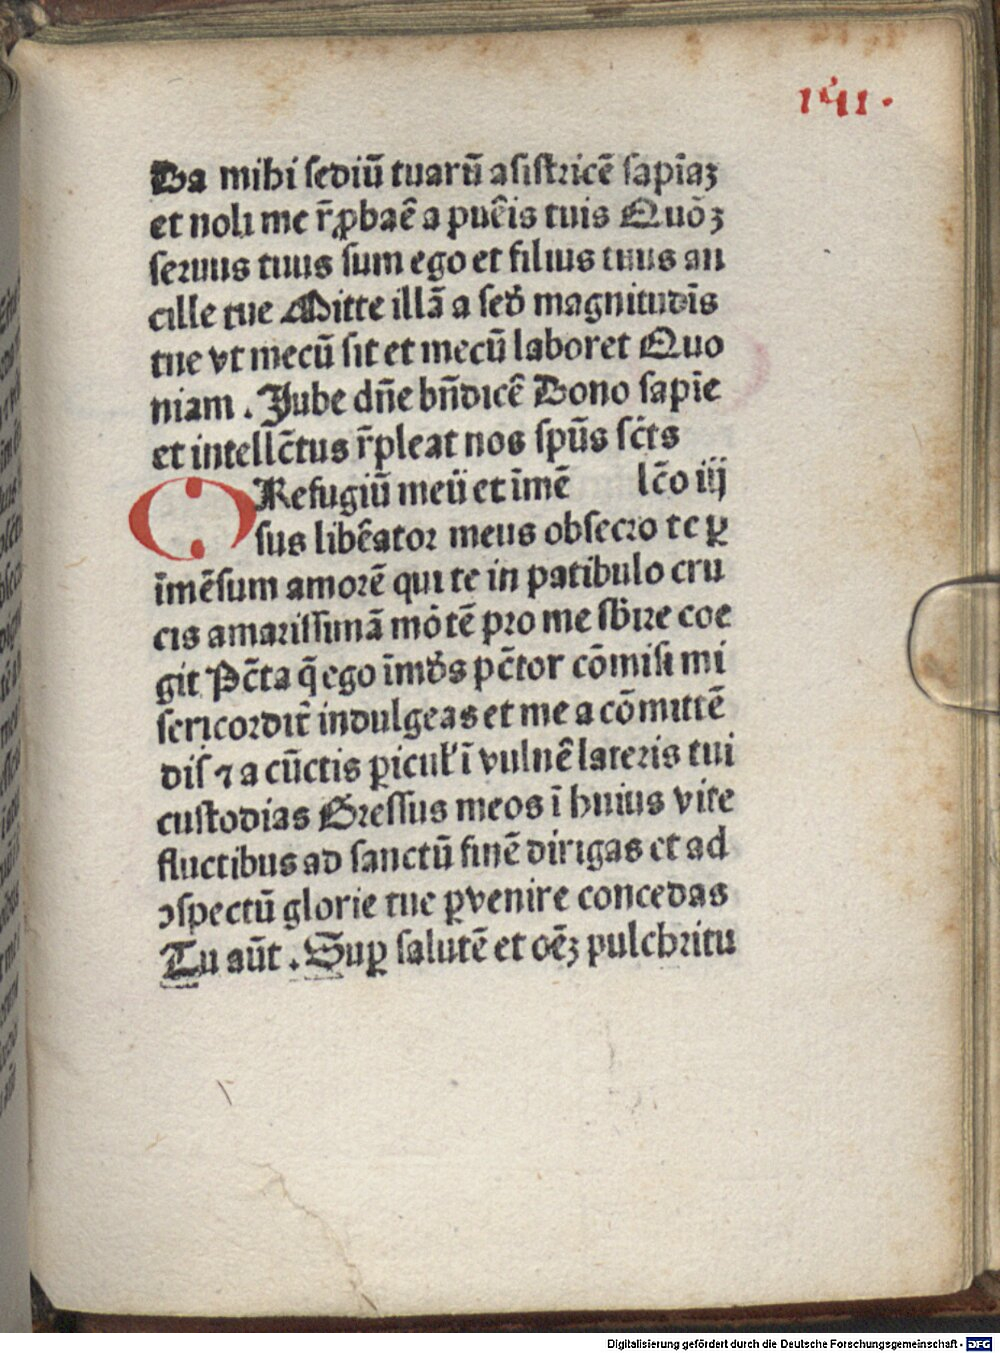 Da mihi sediū tuarū asistricē sapīaʒ
et noli me r̄ꝓbaē a puēis tuis Quōʒ
seruus tuus sum ego et filius tuus an
cille tue Mitte illā a sed̄ magnitudīs
tue vt mecū sit et mecū laboret Quo
niam . Jube dn̄e bn̄dicē Dono sapīe
et intellc̄tus r̄pleat nos spūs sc̄ts
O Refugiū meū et īmē lc̄o iij
sus libēator meus obsecro te ꝑ
īmēsum amorē qui te in patibulo cru
cis amarissimā mōtē pro me sb̄ire coe
git Pc̄ta q̄ ego īmd̄s pc̄tor cōmisi mi
sericordit̄ indulgeas et me a cōmittē
dis ⁊ a cūctis ꝑicul' ī vulnē lateris tui
custodias Gressus meos ī huius vite
fluctibus ad sanctū finē dirigas et ad
ꝯspectū glorie tue ꝑvenire concedas
Tu aūt . Suꝑ salutē et oēʒ pulchritu
Digitalisierung gefördert durch die Deutsche Forschungsgemeinschaft - DFG